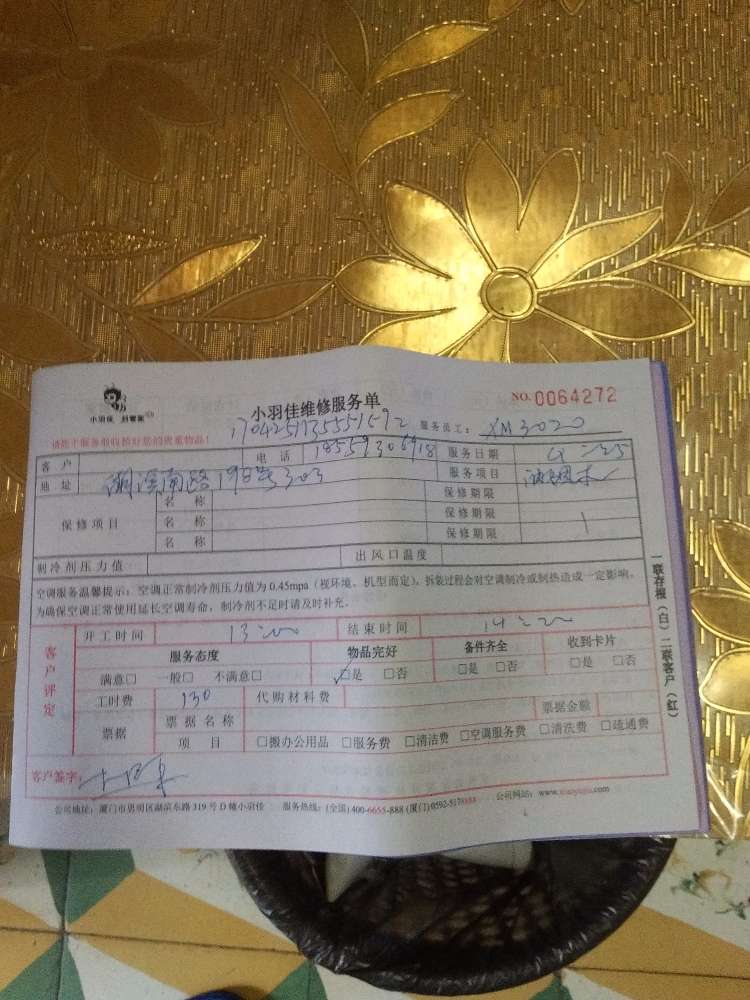 小羽佳 好管家
小羽佳维修服务单
NO. 0064272
请您于服务前收拾好您的贵重物品!
170425135551592
服务员工: XM3020
客户
电话 18559306918
服务日期
地址 198号303
服务项目
保修项目
名称
保修期限
名称
保修期限
名称
保修期限
制冷剂压力值
出风口温度
空调服务温馨提示: 空调正常制冷剂压力值为0.45mpa(视环境、机型而定), 拆装过程会对空调制冷或制热造成一定影响,
为确保空调正常使用延长空调寿命, 制冷剂不足时请及时补充。
客户评定
开工时间 13:00
结束时间
服务态度 物品完好 备件齐全 收到卡片
满意□ 一般□ 不满意□ ☑是 □否 □是 □否 □是 □否
工时费 130 代购材料费
票据
票据名称
票据金额
项目 □搬办公用品 □服务费 □清洁费 □空调服务费 □清洗费 □疏通费
客户签字:
公司地址: 厦门市思明区湖滨东路319号D幢小羽佳 服务热线: (全国)400-6655-888 (厦门)0592-5178888 公司网站:
一联存根(白) 二联客户(红)